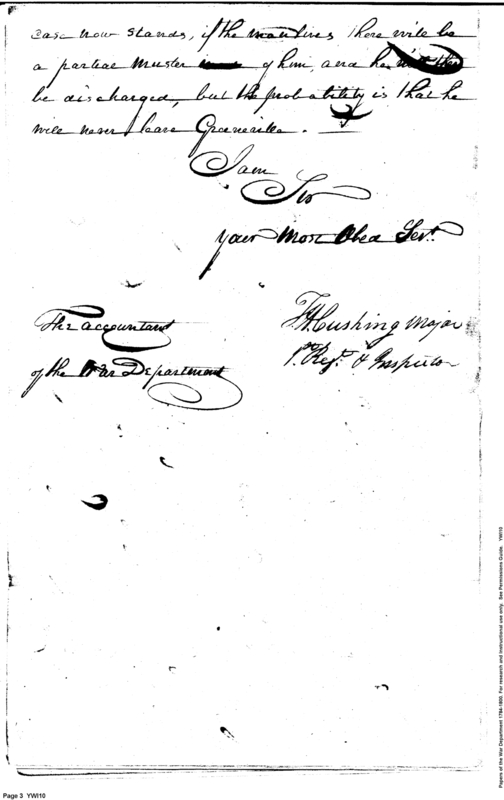 case now stands, if the man lives there will be
a partial muster of him, and he will then
be discharged, but the probability is that he
will never leave Greenville.
I am
Sir
your most Obed Servt.
The accountant
of the War Department
T H Cushing Major
1st. Regt. & Inspector
Papers of the War Department 1784-1800. For research and instructional use only. See Permissions Guide. YWI10
Page 3 YWI10